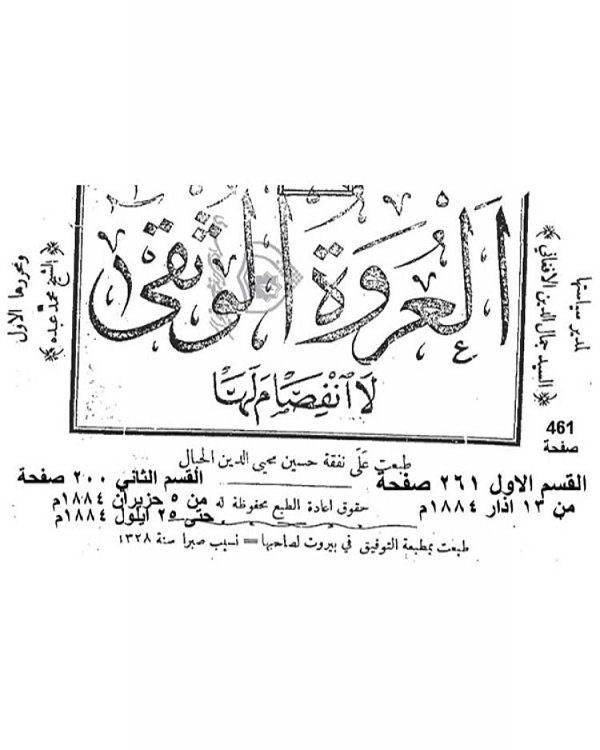 العُروَة الوُثقى
لَا انْفِصَامَ لَهَا
لمدير سياستها
﴿ السيد جمال الدين الافغاني ﴾
ومحررها الاول
﴿ الشيخ محمد عبده ﴾
461
صفحة
طبعت على نفقة حسين محيي الدين الحبال
القسم الاول ٢٦١ صفحة
من ١٣ اذار ١٨٨٤م
القسم الثاني ٢٠٠ صفحة
من ٥ حزيران ١٨٨٤م
حتى ٢٥ ايلول ١٨٨٤م
حقوق اعادة الطبع محفوظة له
طبعت بمطبعة التوفيق في بيروت لصاحبها = نسيب صبرا سنة ١٣٢٨